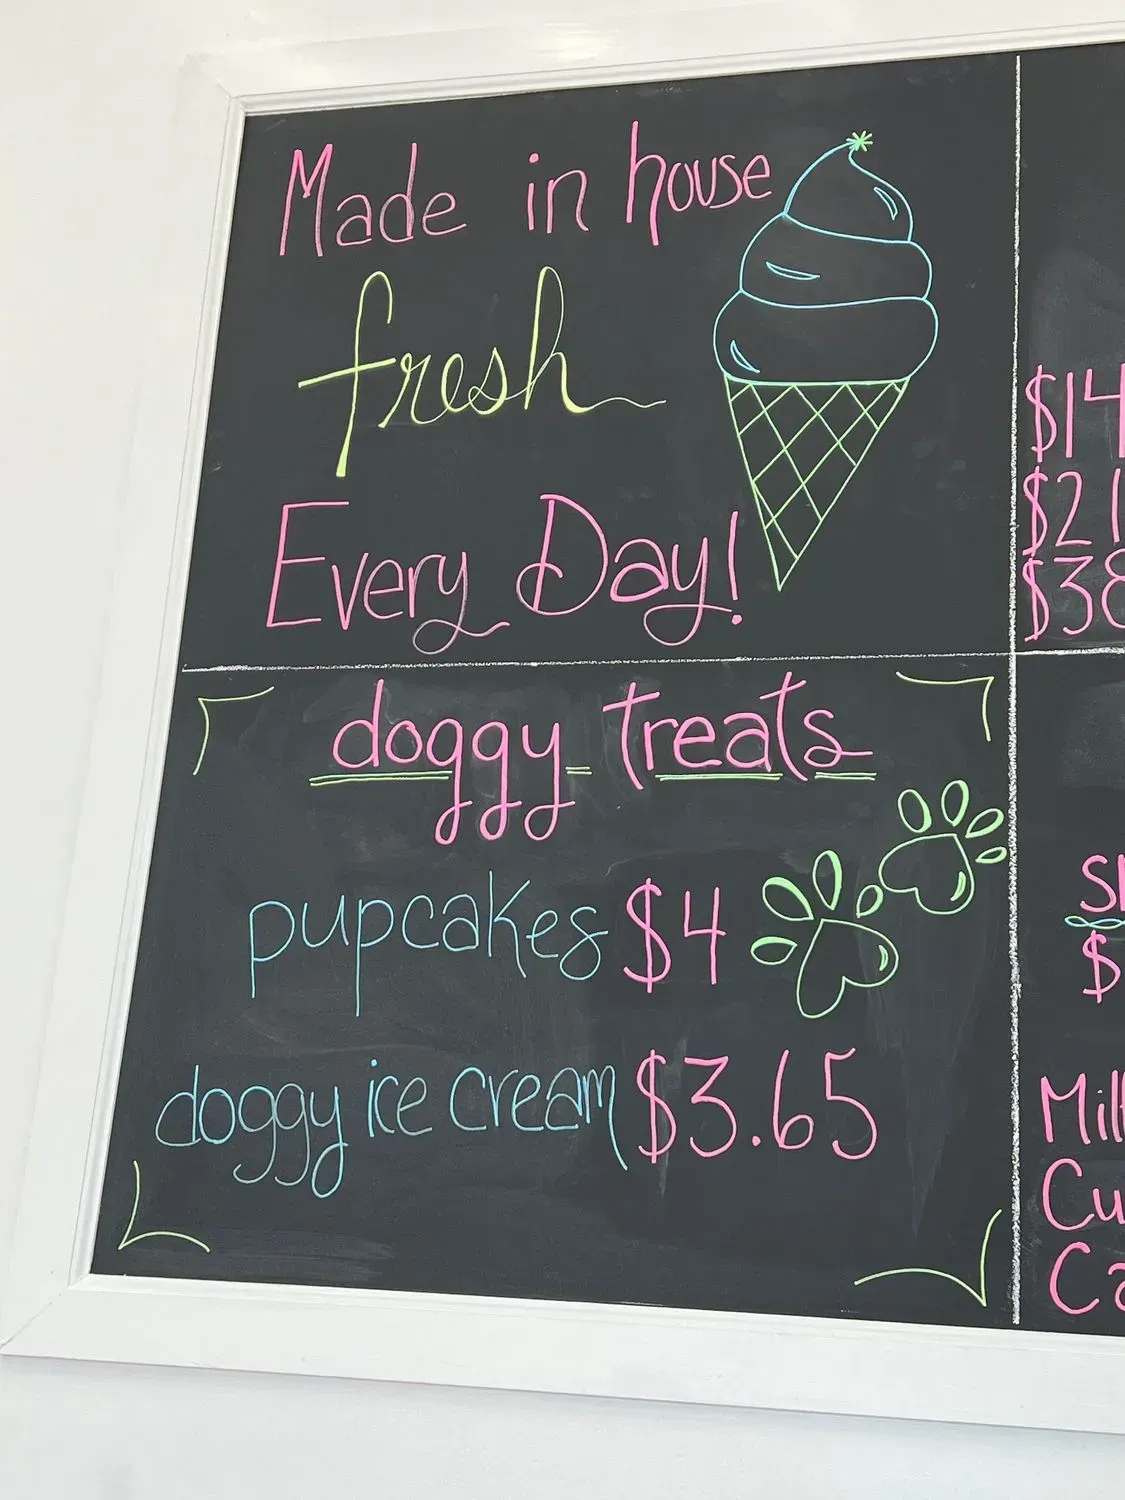 Made in house
fresh
Every Day!
doggy treats
pupcakes $4
doggy ice cream $3.65
$14
$21
$38
$